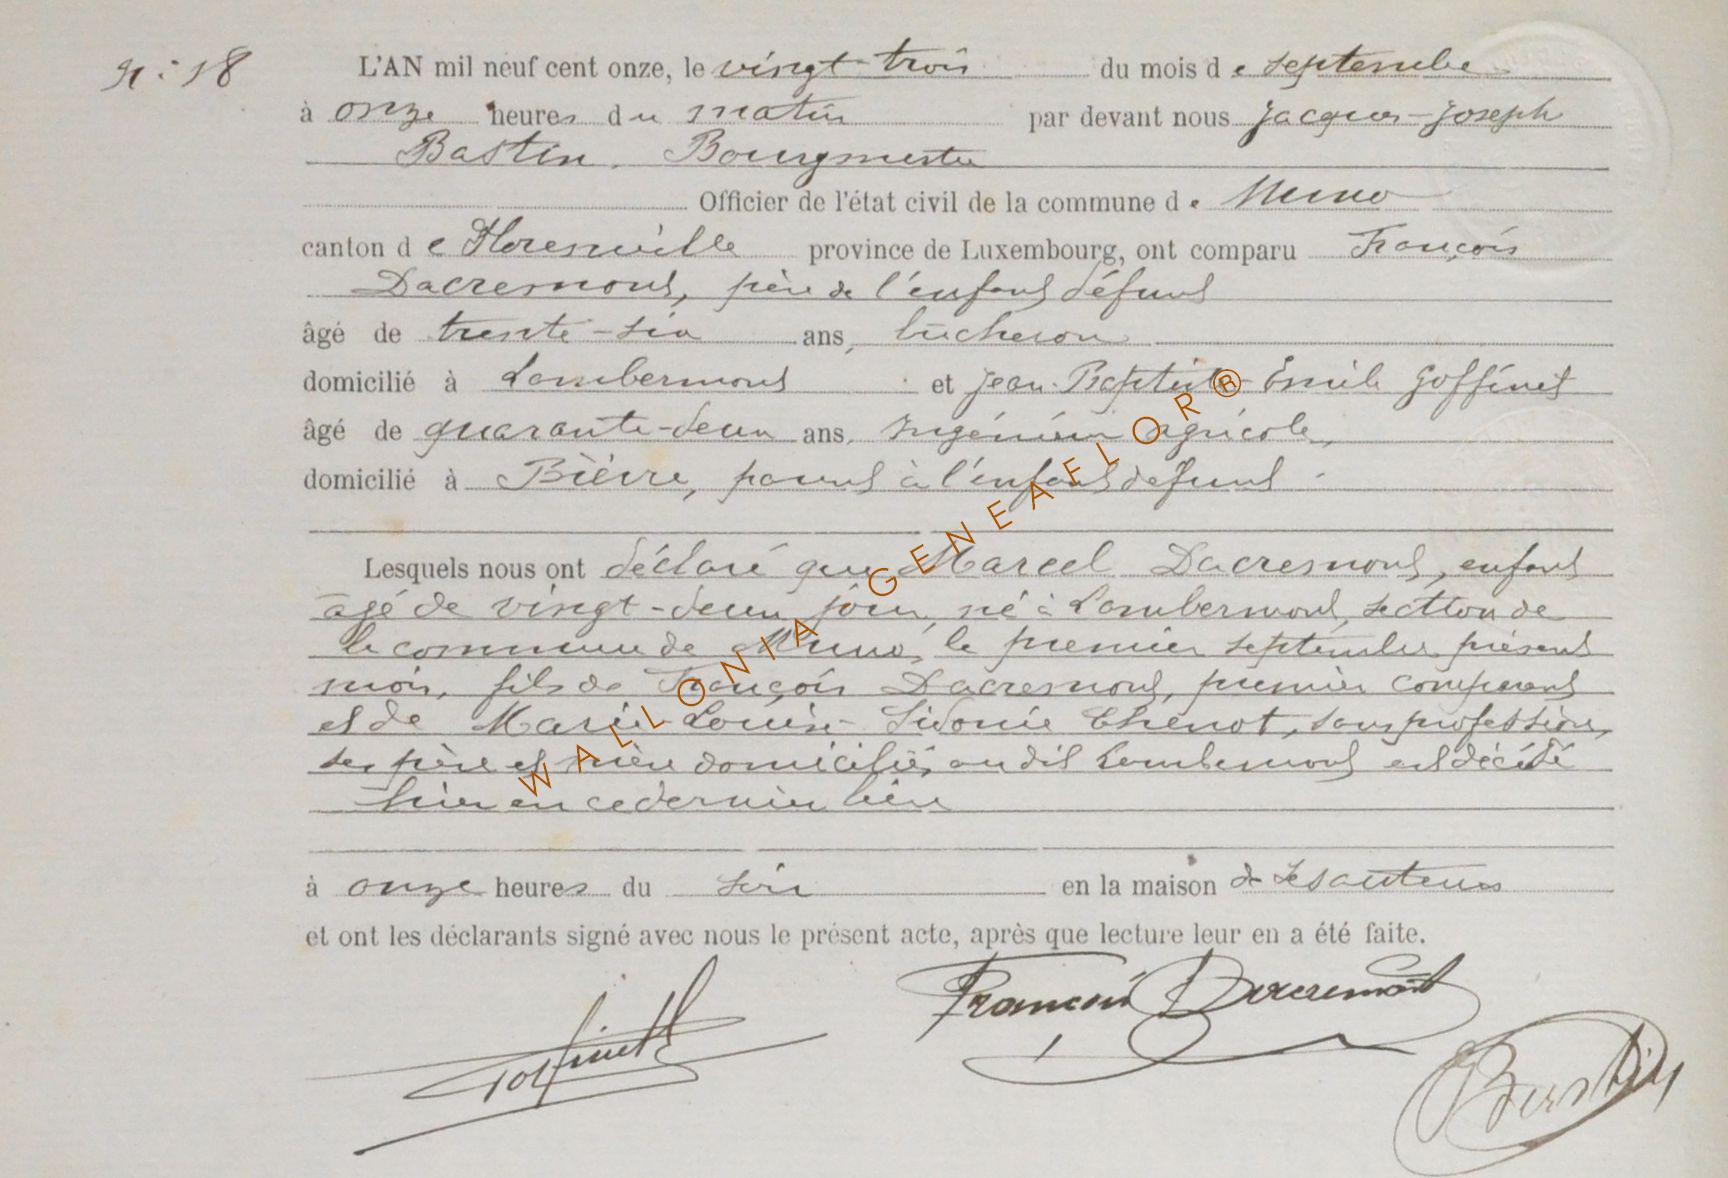 N: 18
L'AN mil neuf cent onze, le vingt-trois du mois de septembre
à onze heures du matin par devant nous Jacques-Joseph
Bastin, Bourgmestre
Officier de l'état civil de la commune de Muno
canton de Florenville province de Luxembourg, ont comparu François
Dacremont, père de l'enfant défunt
âgé de trente-six ans, bûcheron
domicilié à Lambermont et Jean-Baptiste-Émile Goffinet
âgé de quarante-deux ans, Ingénieur agricole,
domicilié à Bièvre, parent à l'enfant défunt.
Lesquels nous ont déclaré que Marcel Dacremont, enfant
âgé de vingt-deux jours, né à Lambermont, section de
la commune de Muno, le premier septembre présent
mois, fils de François Dacremont, premier comparant
et de Marie-Louise-Sidonie Thénot, sans profession,
ses père et mère domiciliés audit Lambermont est décédé
hier en ce dernier lieu
à onze heures du soir en la maison de
et ont les déclarants signé avec nous le présent acte, après que lecture leur en a été faite.
François Dacremont
Goffinet
Bastin
WALLONIA GENEAFLOR®